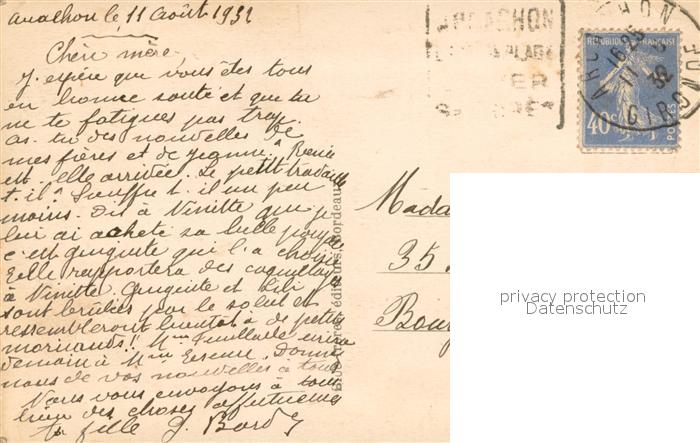 Arcachon le 11 Août 1932
Chère mère,
J'espère que vous êtes tous
en bonne santé et que tu
ne te fatigues pas trop.
as-tu des nouvelles de
mes frères et de Jeanne,
est-elle arrivée. Le petit travaille
t-il? Souffre t-il un peu
moins. Dis à Ninette que je
lui ai acheté sa belle poupée
c'est qui l'a choisie
Elle rapportera des coquillages
à Ninette. et Lili
sont brulées par le soleil et
ressembleront bientôt à de petits
moricauds!! Mme
demain à Mme Donne
nous de vos nouvelles à tous
Nous vous envoyons à tous
bien des choses affectueuses
ta fille J.
éditeurs, Bordeaux
ARCACHON
PLAGE
ARCACHON
16 25
11
32
GIRONDE
REPUBLIQUE FRANÇAISE
40c
Mada
35
Bou
privacy protection
Datenschutz